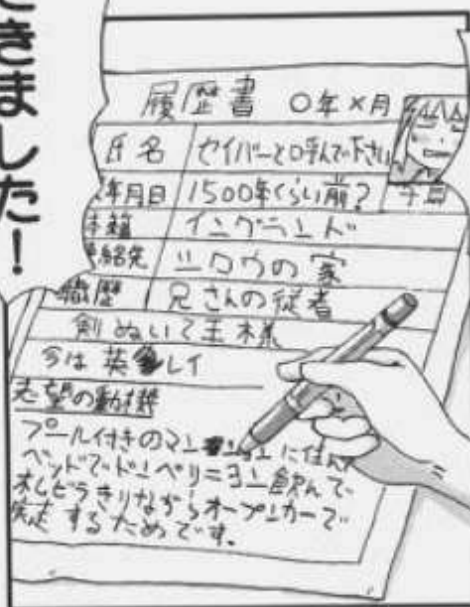 できました！
履歴書 〇年×月
氏名 セイバーと呼んで下さい
年月日 1500年くらい前？
本籍 イングランド
連絡先 シロウの家
職歴 兄さんの従者
剣ぬいて王様
今は 英レイ
志望の動機
プール付きのマンションに住んで
ベッドでドンペリニヨン飲んで
札ビラきりながらオープンカーで
疾走するためです。